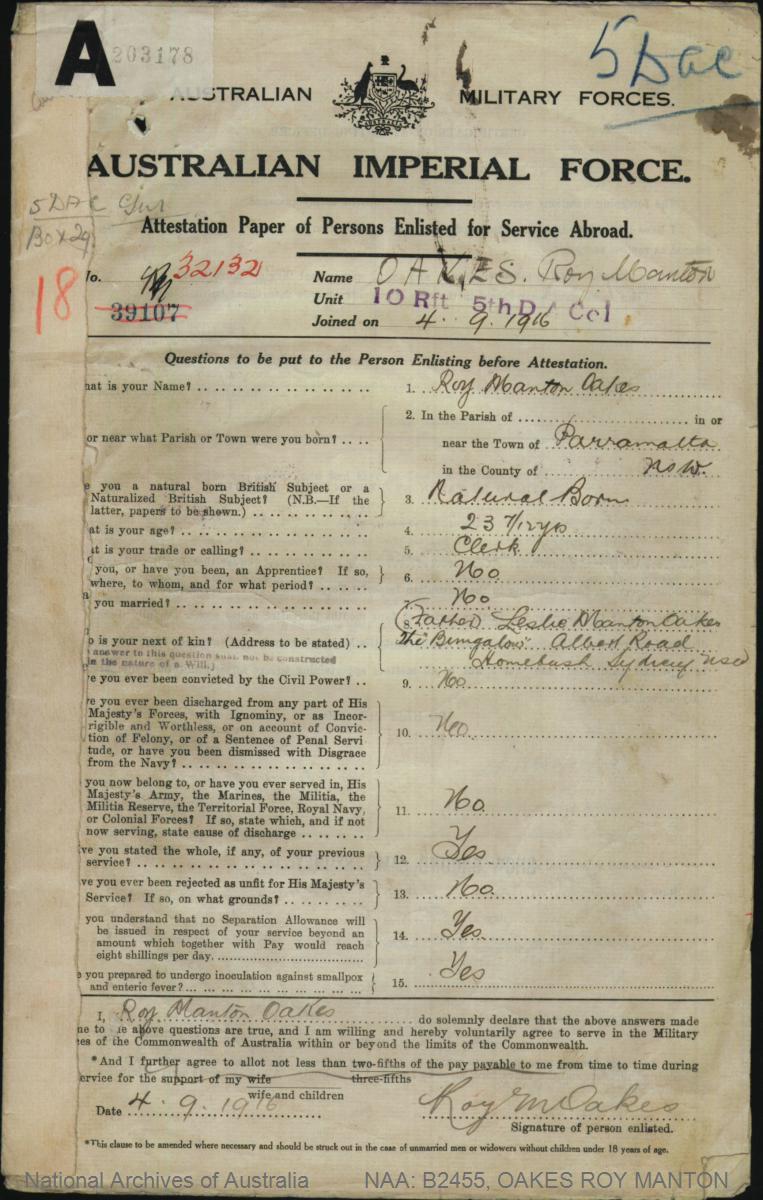 A 203178
5 DAC
AUSTRALIAN MILITARY FORCES.
AUSTRALIAN IMPERIAL FORCE.
5 DAC
Box 29
Attestation Paper of Persons Enlisted for Service Abroad.
18
No. 32132
39107
Name OAKES. Roy Manton
Unit 10 Rft 5th D A Col
Joined on 4. 9. 1916
Questions to be put to the Person Enlisting before Attestation.
hat is your Name? 1. Roy Manton Oakes
or near what Parish or Town were you born? 2. In the Parish of in or
near the Town of Parramatta
in the County of NSW.
e you a natural born British Subject or a
Naturalized British Subject? (N.B.—If the
latter, papers to be shown.) 3. Natural Born
at is your age? 4. 23 7/12 yrs
at is your trade or calling? 5. Clerk
you, or have you been, an Apprentice? If so,
where, to whom, and for what period? 6. No
you married? No
o is your next of kin? (Address to be stated) 8. (Father) Leslie Manton Oakes
"The Bungalow" Albert Road
Homebush Sydney NSW
answer to this question shall not be constructed
in the nature of a Will.)
re you ever been convicted by the Civil Power? 9. No
ve you ever been discharged from any part of His
Majesty's Forces, with Ignominy, or as Incor-
rigible and Worthless, or on account of Convic-
tion of Felony, or of a Sentence of Penal Servi
tude, or have you been dismissed with Disgrace
from the Navy? 10. No
you now belong to, or have you ever served in, His
Majesty's Army, the Marines, the Militia, the
Militia Reserve, the Territorial Force, Royal Navy,
or Colonial Forces? If so, state which, and if not
now serving, state cause of discharge 11. No
ve you stated the whole, if any, of your previous
service? 12. Yes
ve you ever been rejected as unfit for His Majesty's
Service? If so, on what grounds? 13. No
you understand that no Separation Allowance will
be issued in respect of your service beyond an
amount which together with Pay would reach
eight shillings per day. 14. Yes
e you prepared to undergo inoculation against smallpox
and enteric fever? 15. Yes
I, Roy Manton Oakes do solemnly declare that the above answers made
me to he above questions are true, and I am willing and hereby voluntarily agree to serve in the Military
ces of the Commonwealth of Australia within or beyond the limits of the Commonwealth.
*And I further agree to allot not less than two-fifths of the pay payable to me from time to time during
three-fifths
ervice for the support of my wife
wife and children
Date 4. 9. 1916 Roy M Oakes
Signature of person enlisted.
*This clause to be amended where necessary and should be struck out in the case of unmarried men or widowers without children under 18 years of age.
National Archives of Australia NAA: B2455, OAKES ROY MANTON